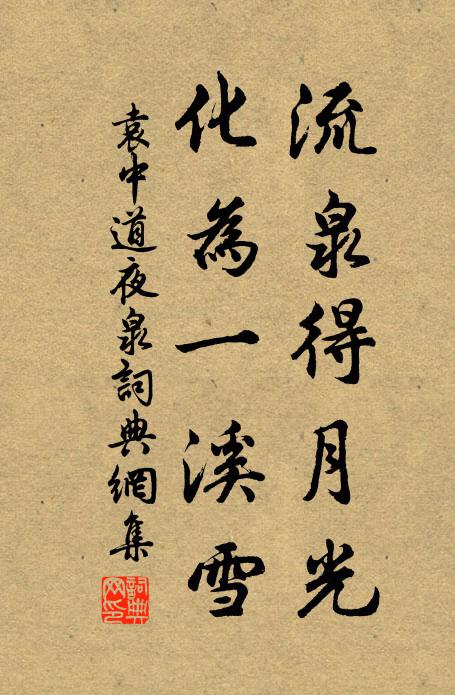 流泉得月光
化為一溪雪
袁中道夜泉詞典網集
詞典網印